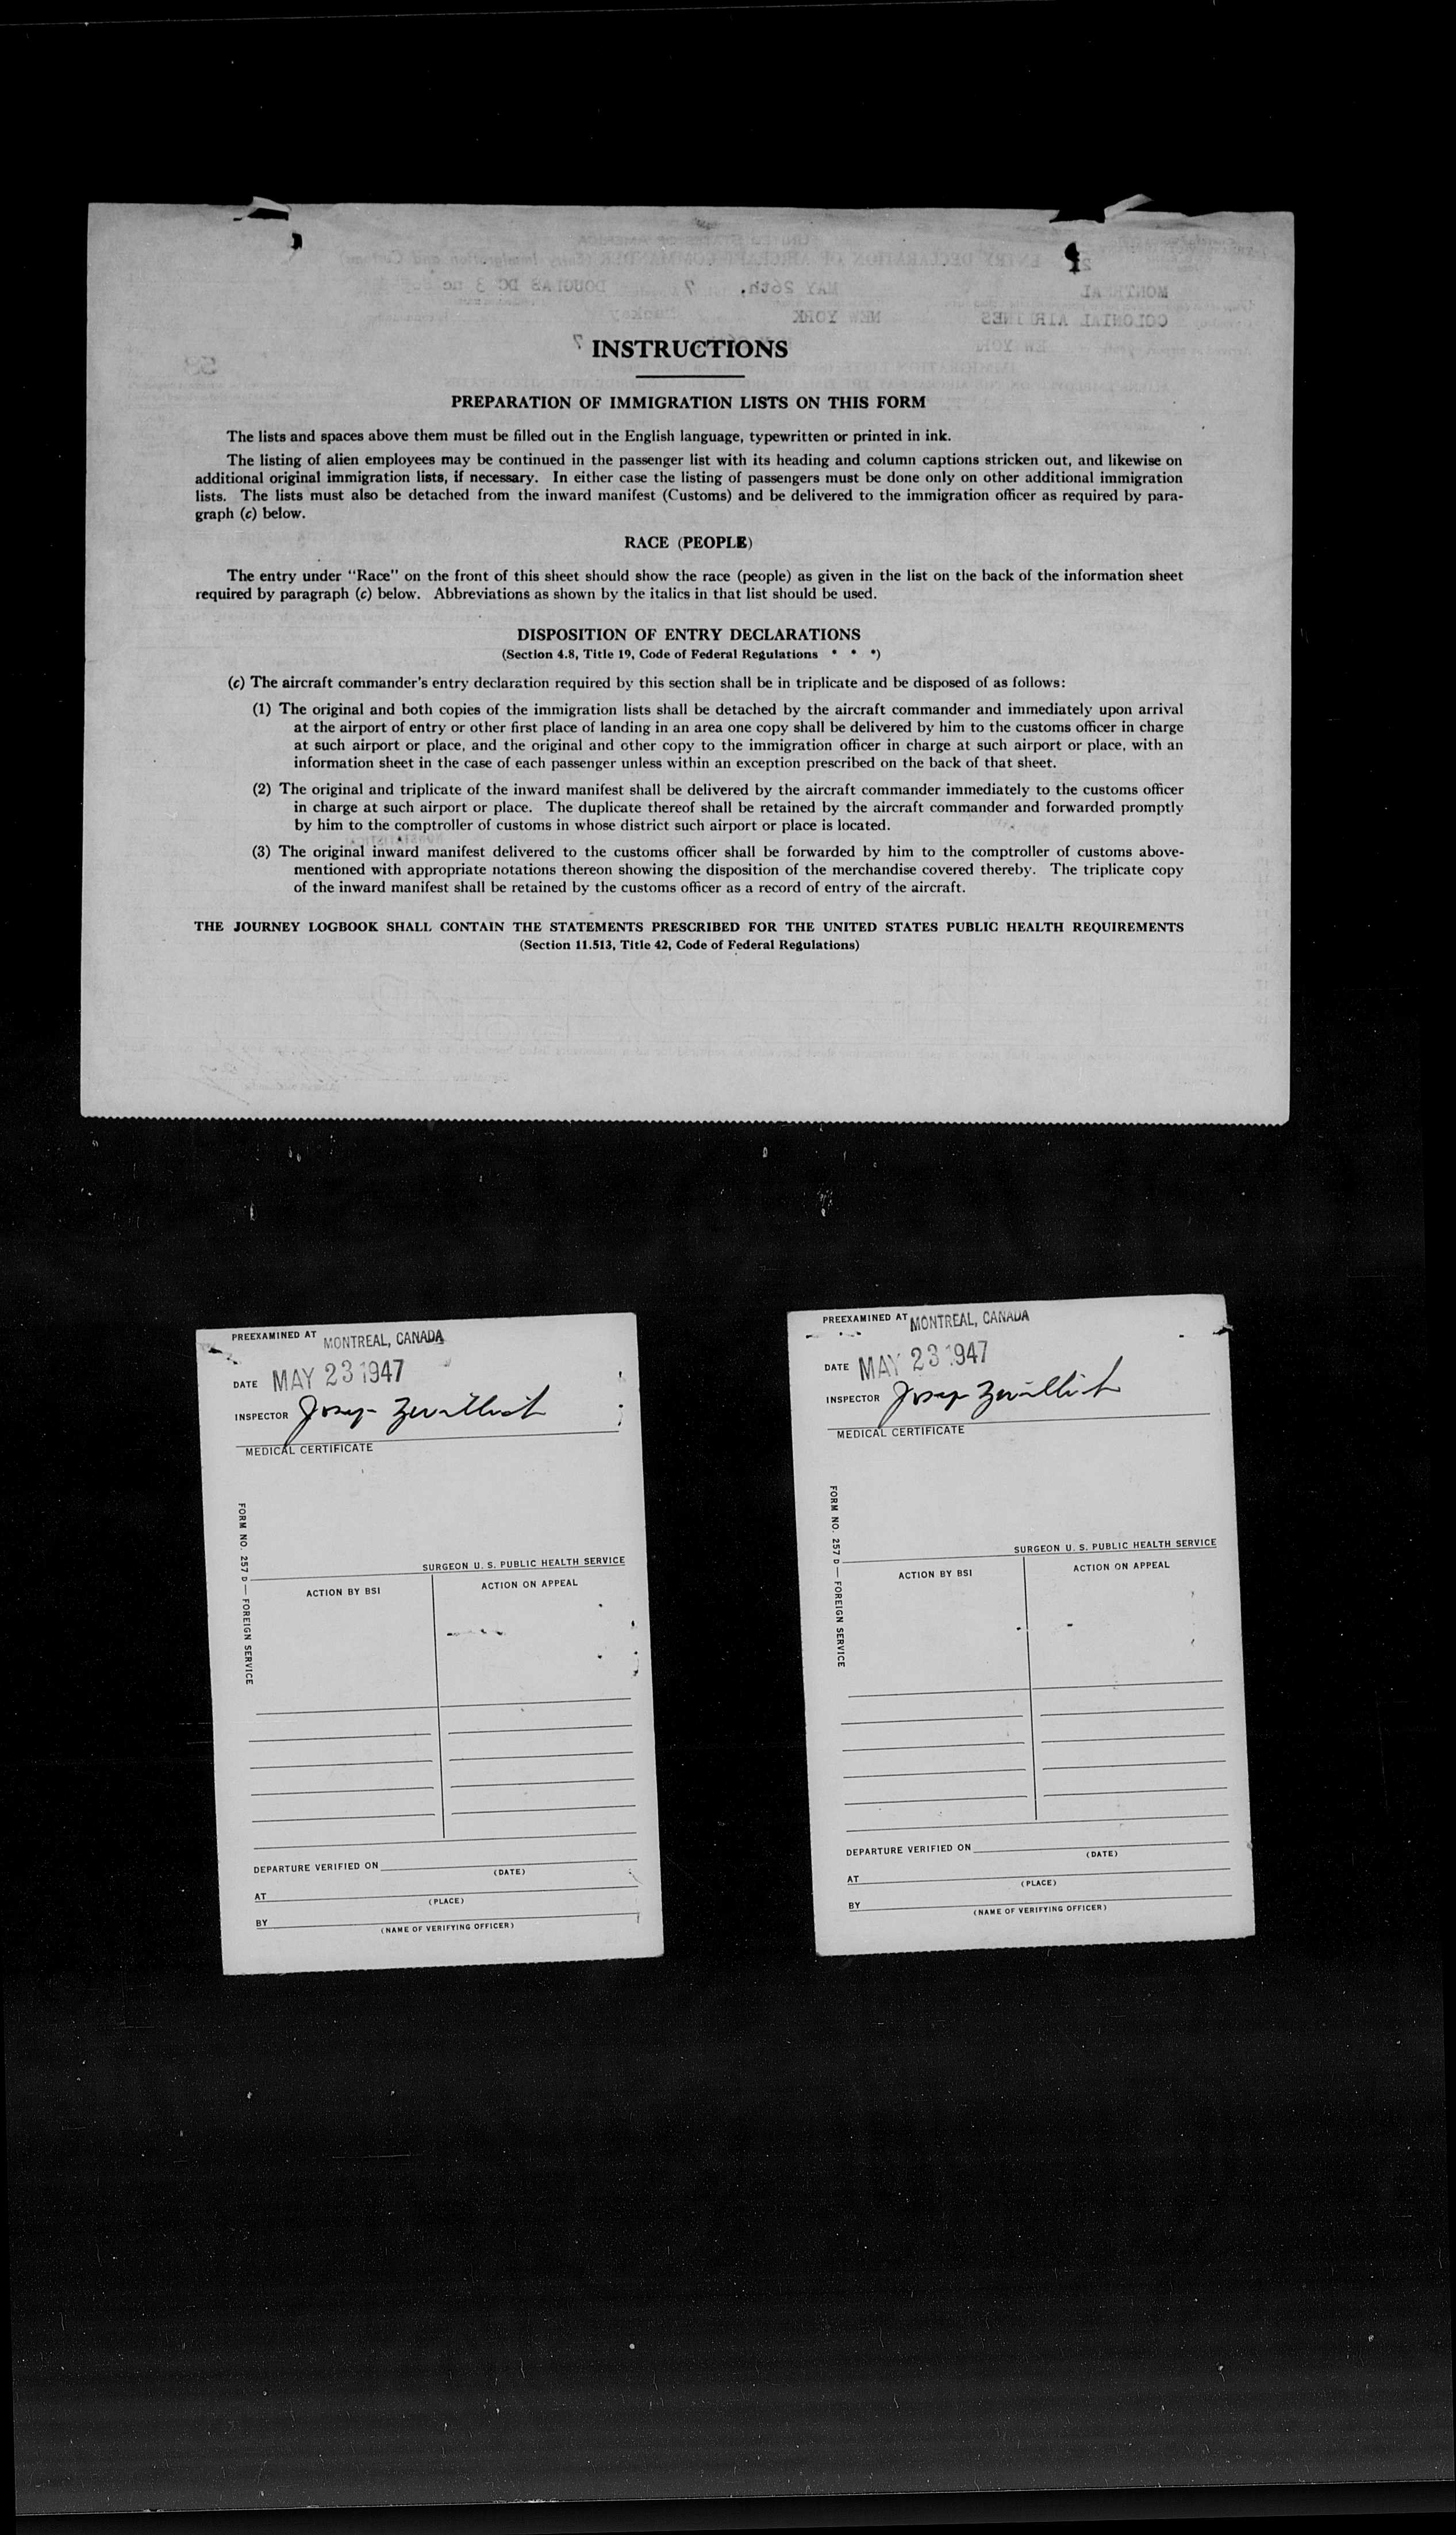 INSTRUCTIONS
PREPARATION OF IMMIGRATION LISTS ON THIS FORM
The lists and spaces above them must be filled out in the English language, typewritten or printed in ink.
The listing of alien employees may be continued in the passenger list with its heading and column captions stricken out, and likewise on
additional original immigration lists, if necessary. In either case the listing of passengers must be done only on other additional immigration
lists. The lists must also be detached from the inward manifest (Customs) and be delivered to the immigration officer as required by para-
graph (c) below.
RACE (PEOPLE)
The entry under “Race” on the front of this sheet should show the race (people) as given in the list on the back of the information sheet
required by paragraph (c) below. Abbreviations as shown by the italics in that list should be used.
DISPOSITION OF ENTRY DECLARATIONS
(Section 4.8, Title 19, Code of Federal Regulations * * *)
(c) The aircraft commander’s entry declaration required by this section shall be in triplicate and be disposed of as follows:
(1) The original and both copies of the immigration lists shall be detached by the aircraft commander and immediately upon arrival
at the airport of entry or other first place of landing in an area one copy shall be delivered by him to the customs officer in charge
at such airport or place, and the original and other copy to the immigration officer in charge at such airport or place, with an
information sheet in the case of each passenger unless within an exception prescribed on the back of that sheet.
(2) The original and triplicate of the inward manifest shall be delivered by the aircraft commander immediately to the customs officer
in charge at such airport or place. The duplicate thereof shall be retained by the aircraft commander and forwarded promptly
by him to the comptroller of customs in whose district such airport or place is located.
(3) The original inward manifest delivered to the customs officer shall be forwarded by him to the comptroller of customs above-
mentioned with appropriate notations thereon showing the disposition of the merchandise covered thereby. The triplicate copy
of the inward manifest shall be retained by the customs officer as a record of entry of the aircraft.
THE JOURNEY LOGBOOK SHALL CONTAIN THE STATEMENTS PRESCRIBED FOR THE UNITED STATES PUBLIC HEALTH REQUIREMENTS
(Section 11.513, Title 42, Code of Federal Regulations)
PREEXAMINED AT MONTREAL, CANADA
DATE MAY 23 1947
INSPECTOR
MEDICAL CERTIFICATE
FORM NO. 257 D — FOREIGN SERVICE
SURGEON U. S. PUBLIC HEALTH SERVICE
ACTION BY BSI ACTION ON APPEAL
DEPARTURE VERIFIED ON
(DATE)
AT
(PLACE)
BY
(NAME OF VERIFYING OFFICER)
PREEXAMINED AT MONTREAL, CANADA
DATE MAY 23 1947
INSPECTOR
MEDICAL CERTIFICATE
FORM NO. 257 D — FOREIGN SERVICE
SURGEON U. S. PUBLIC HEALTH SERVICE
ACTION BY BSI ACTION ON APPEAL
DEPARTURE VERIFIED ON
(DATE)
AT
(PLACE)
BY
(NAME OF VERIFYING OFFICER)